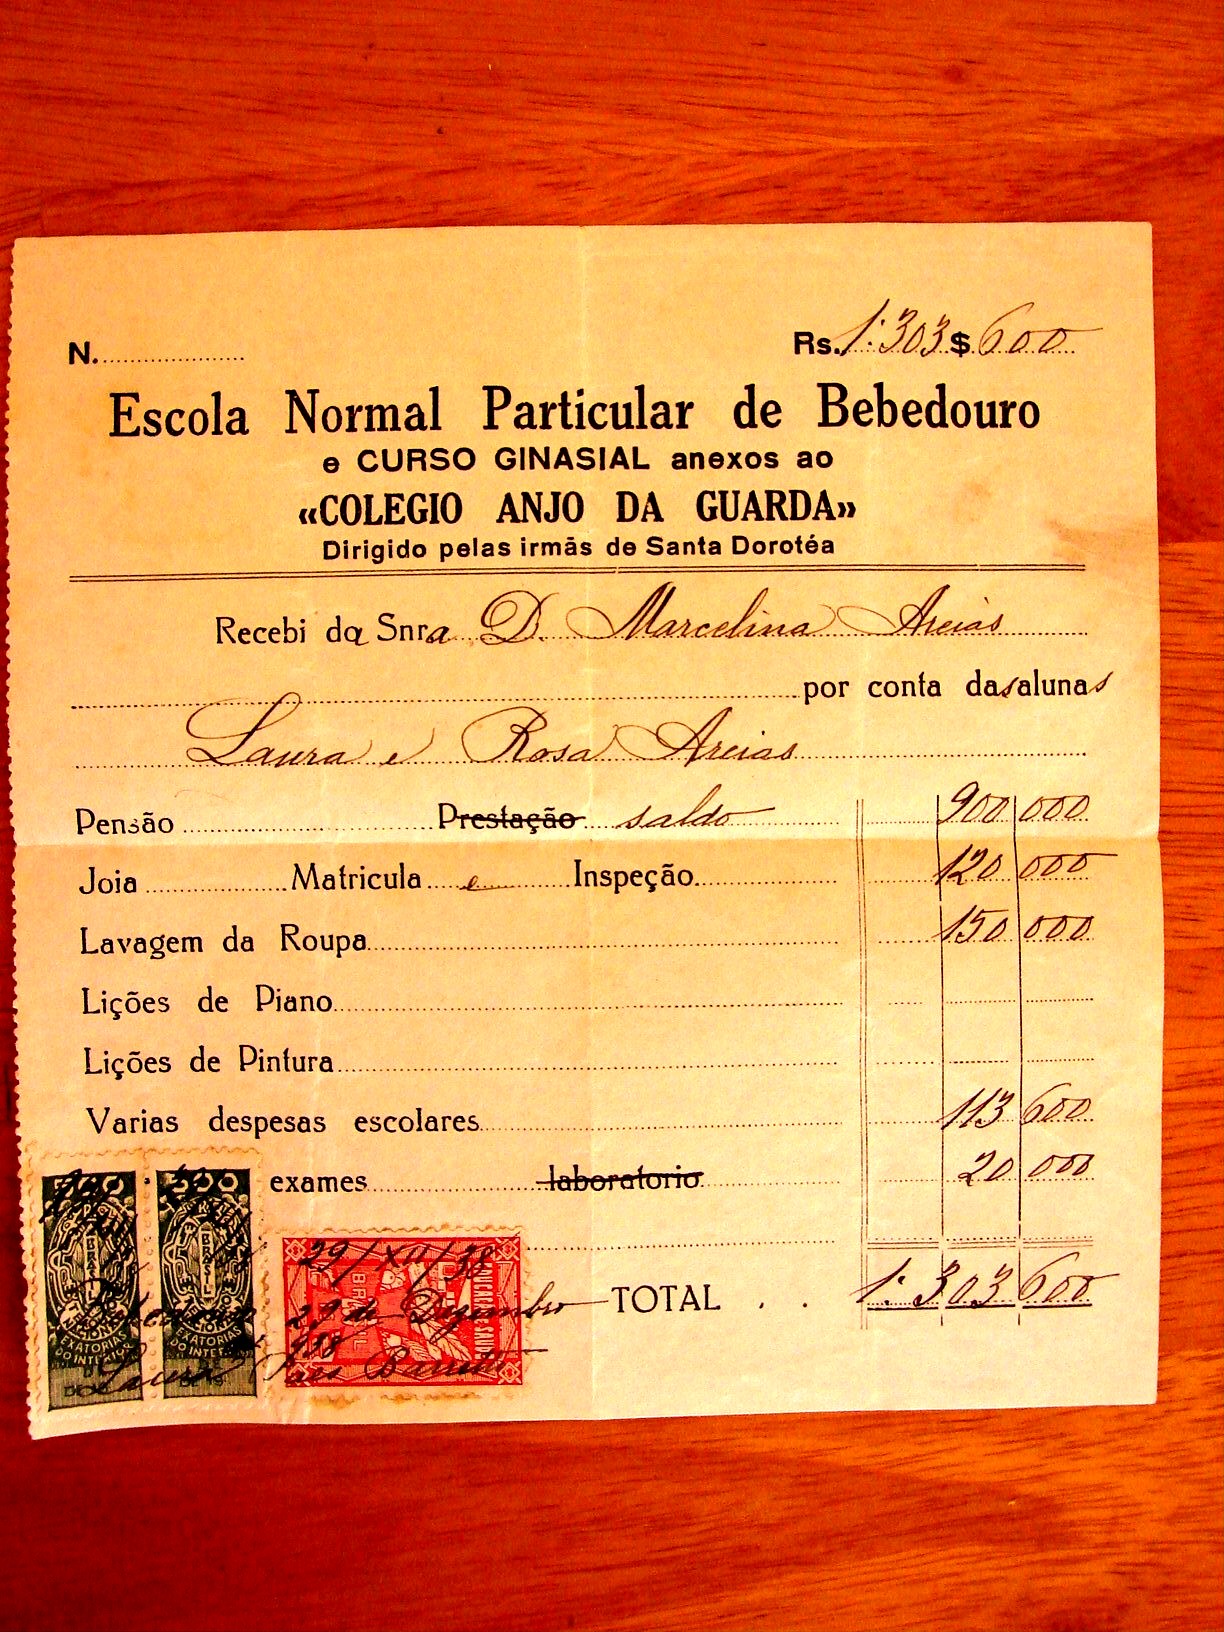 N.
Rs. 1:303$600
Escola Normal Particular de Bebedouro
e CURSO GINASIAL anexos ao
«COLEGIO ANJO DA GUARDA»
Dirigido pelas irmãs de Santa Dorotéa
Recebi da Snra D. Marcelina Areias
por conta das alunas
Laura e Rosa Areias
Pensão Prestação saldo 900 000
Joia Matricula e Inspeção 120 000
Lavagem da Roupa 150 000
Lições de Piano
Lições de Pintura
Varias despesas escolares 113 600
exames laboratorio 20 000
TOTAL . . 1:303 600
29/XII/38
29 de Dezembro
938
Laura Paes Barretto
BRASIL
EXATORIAS
DO INTERIOR
BRASIL
EXATORIAS
BRASIL
EDUCAÇÃO E SAUDE